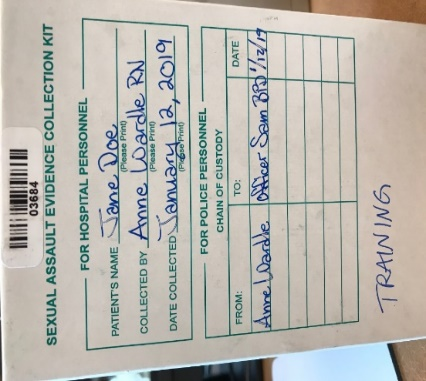 SEXUAL ASSAULT EVIDENCE COLLECTION KIT
03684
FOR HOSPITAL PERSONNEL
PATIENT'S NAME Jane Doe
(Please Print)
COLLECTED BY Anne Wardle RN
(Please Print)
DATE COLLECTED January 12, 2019
(Please Print)
FOR POLICE PERSONNEL
CHAIN OF CUSTODY
FROM: TO: DATE
Anne Wardle Officer Sam BPD 1/12/19
TRAINING